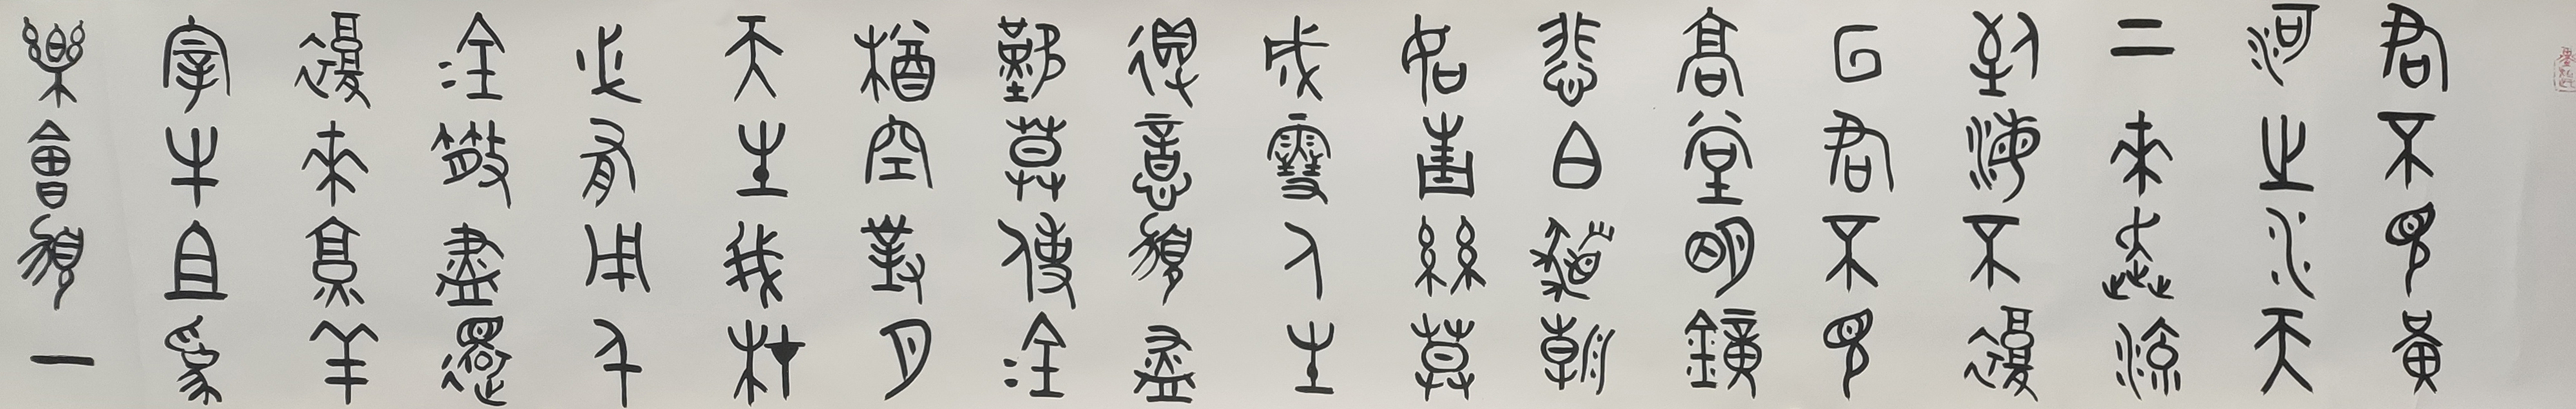 君不見黃
河之水天
上來奔流
到海不復
回君不見
高堂明鏡
悲白髮朝
如青絲莫
成雪人生
得意須盡
歡莫使金
樽空對月
天生我材
必有用千
金散盡還
復來烹羊
宰牛且為
樂會須一